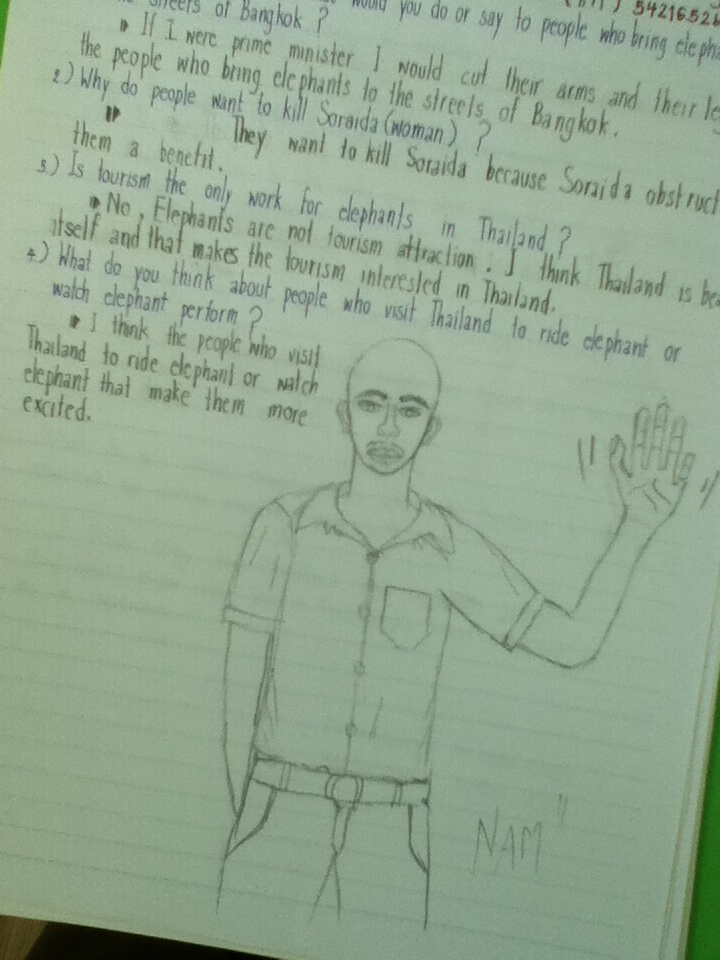 streets of Bangkok ? would you do or say to people who bring
▶ If I were prime minister I would cut their arms and their
the people who bring elephants to the streets of Bangkok.
2.) Why do people want to kill Soraida (woman) ?
▶ They want to kill Soraida because Soraida obstruct
them a benefit.
3.) Is tourism the only work for elephants in Thailand ?
▶ No, Elephants are not tourism attraction. I think Thailand is
itself and that makes the tourism interested in Thailand.
4.) What do you think about people who visit Thailand to ride elephant or
watch elephant perform ?
▶ I think the people who visit
Thailand to ride elephant or watch
elephant that make them more
excited.
NAM"